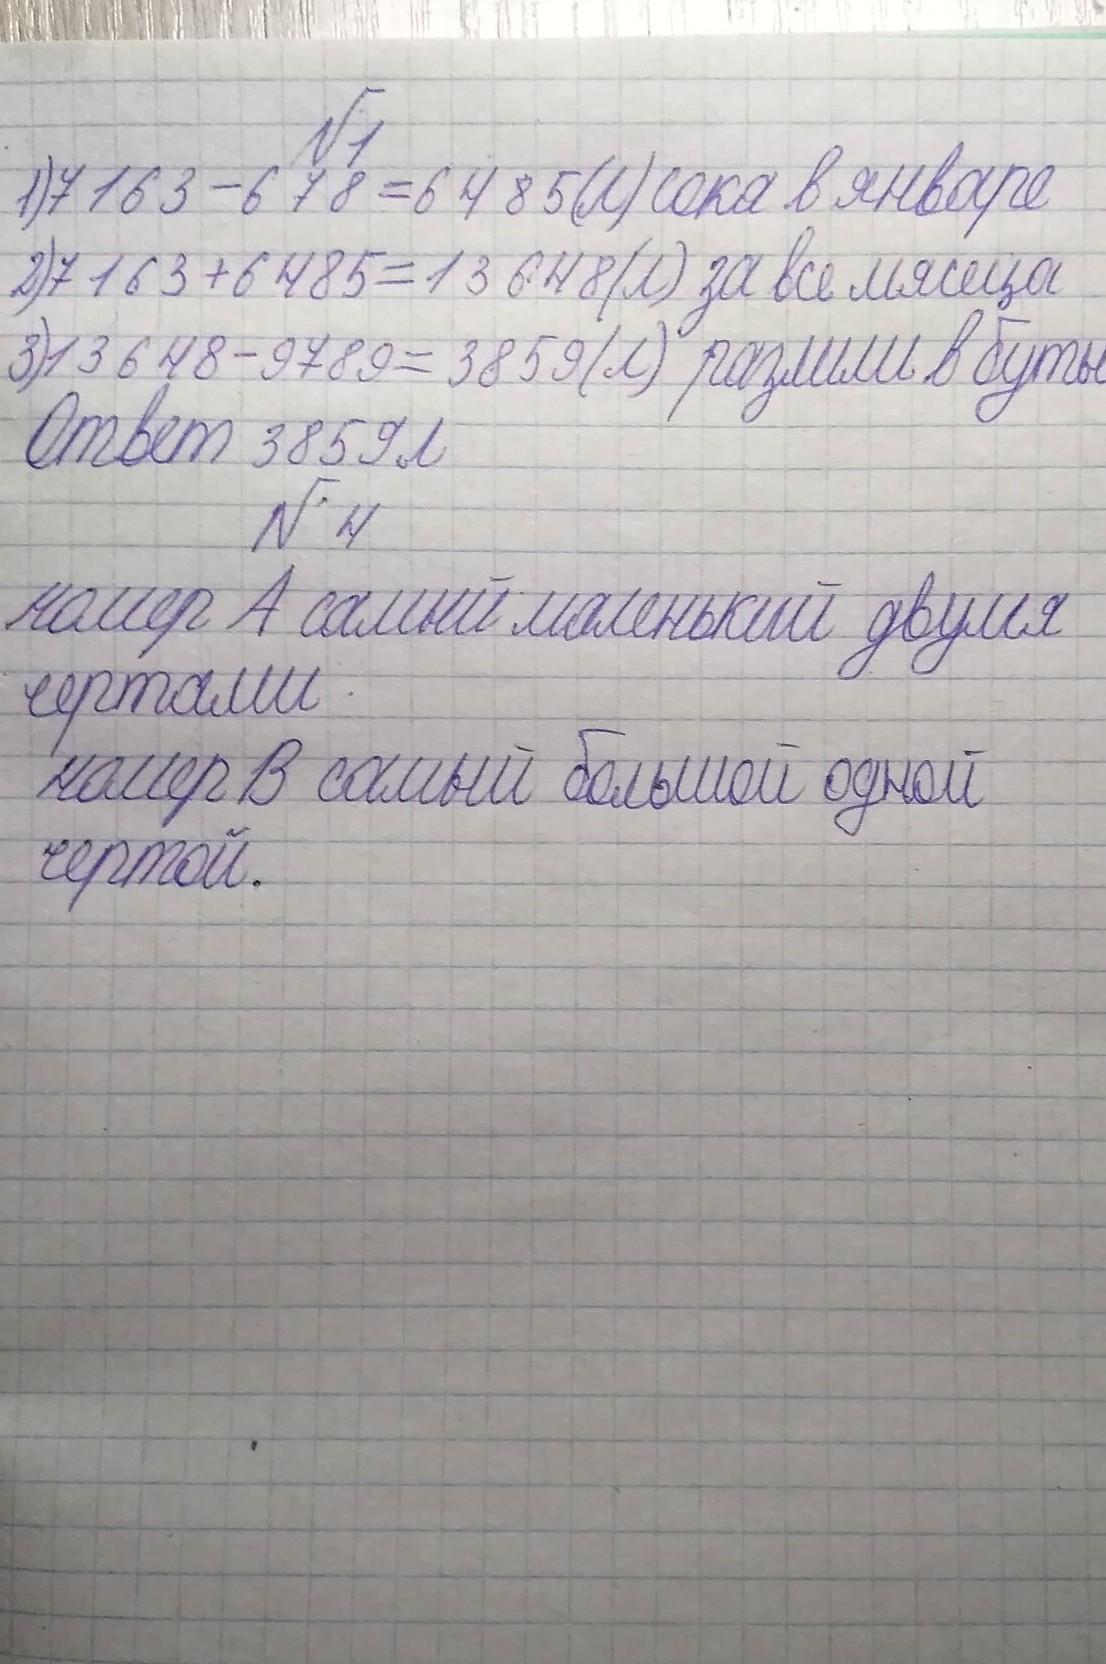 №1
1)7163-678=6485(л)сока в январе
2)7163+6485=13648(л) за все мясеца
3)13648-9789=3859(л) разлили в буты
Ответ 3859л
№4
номер А самый маленький двумя
чертами
номер В самый большой одной
чертой.